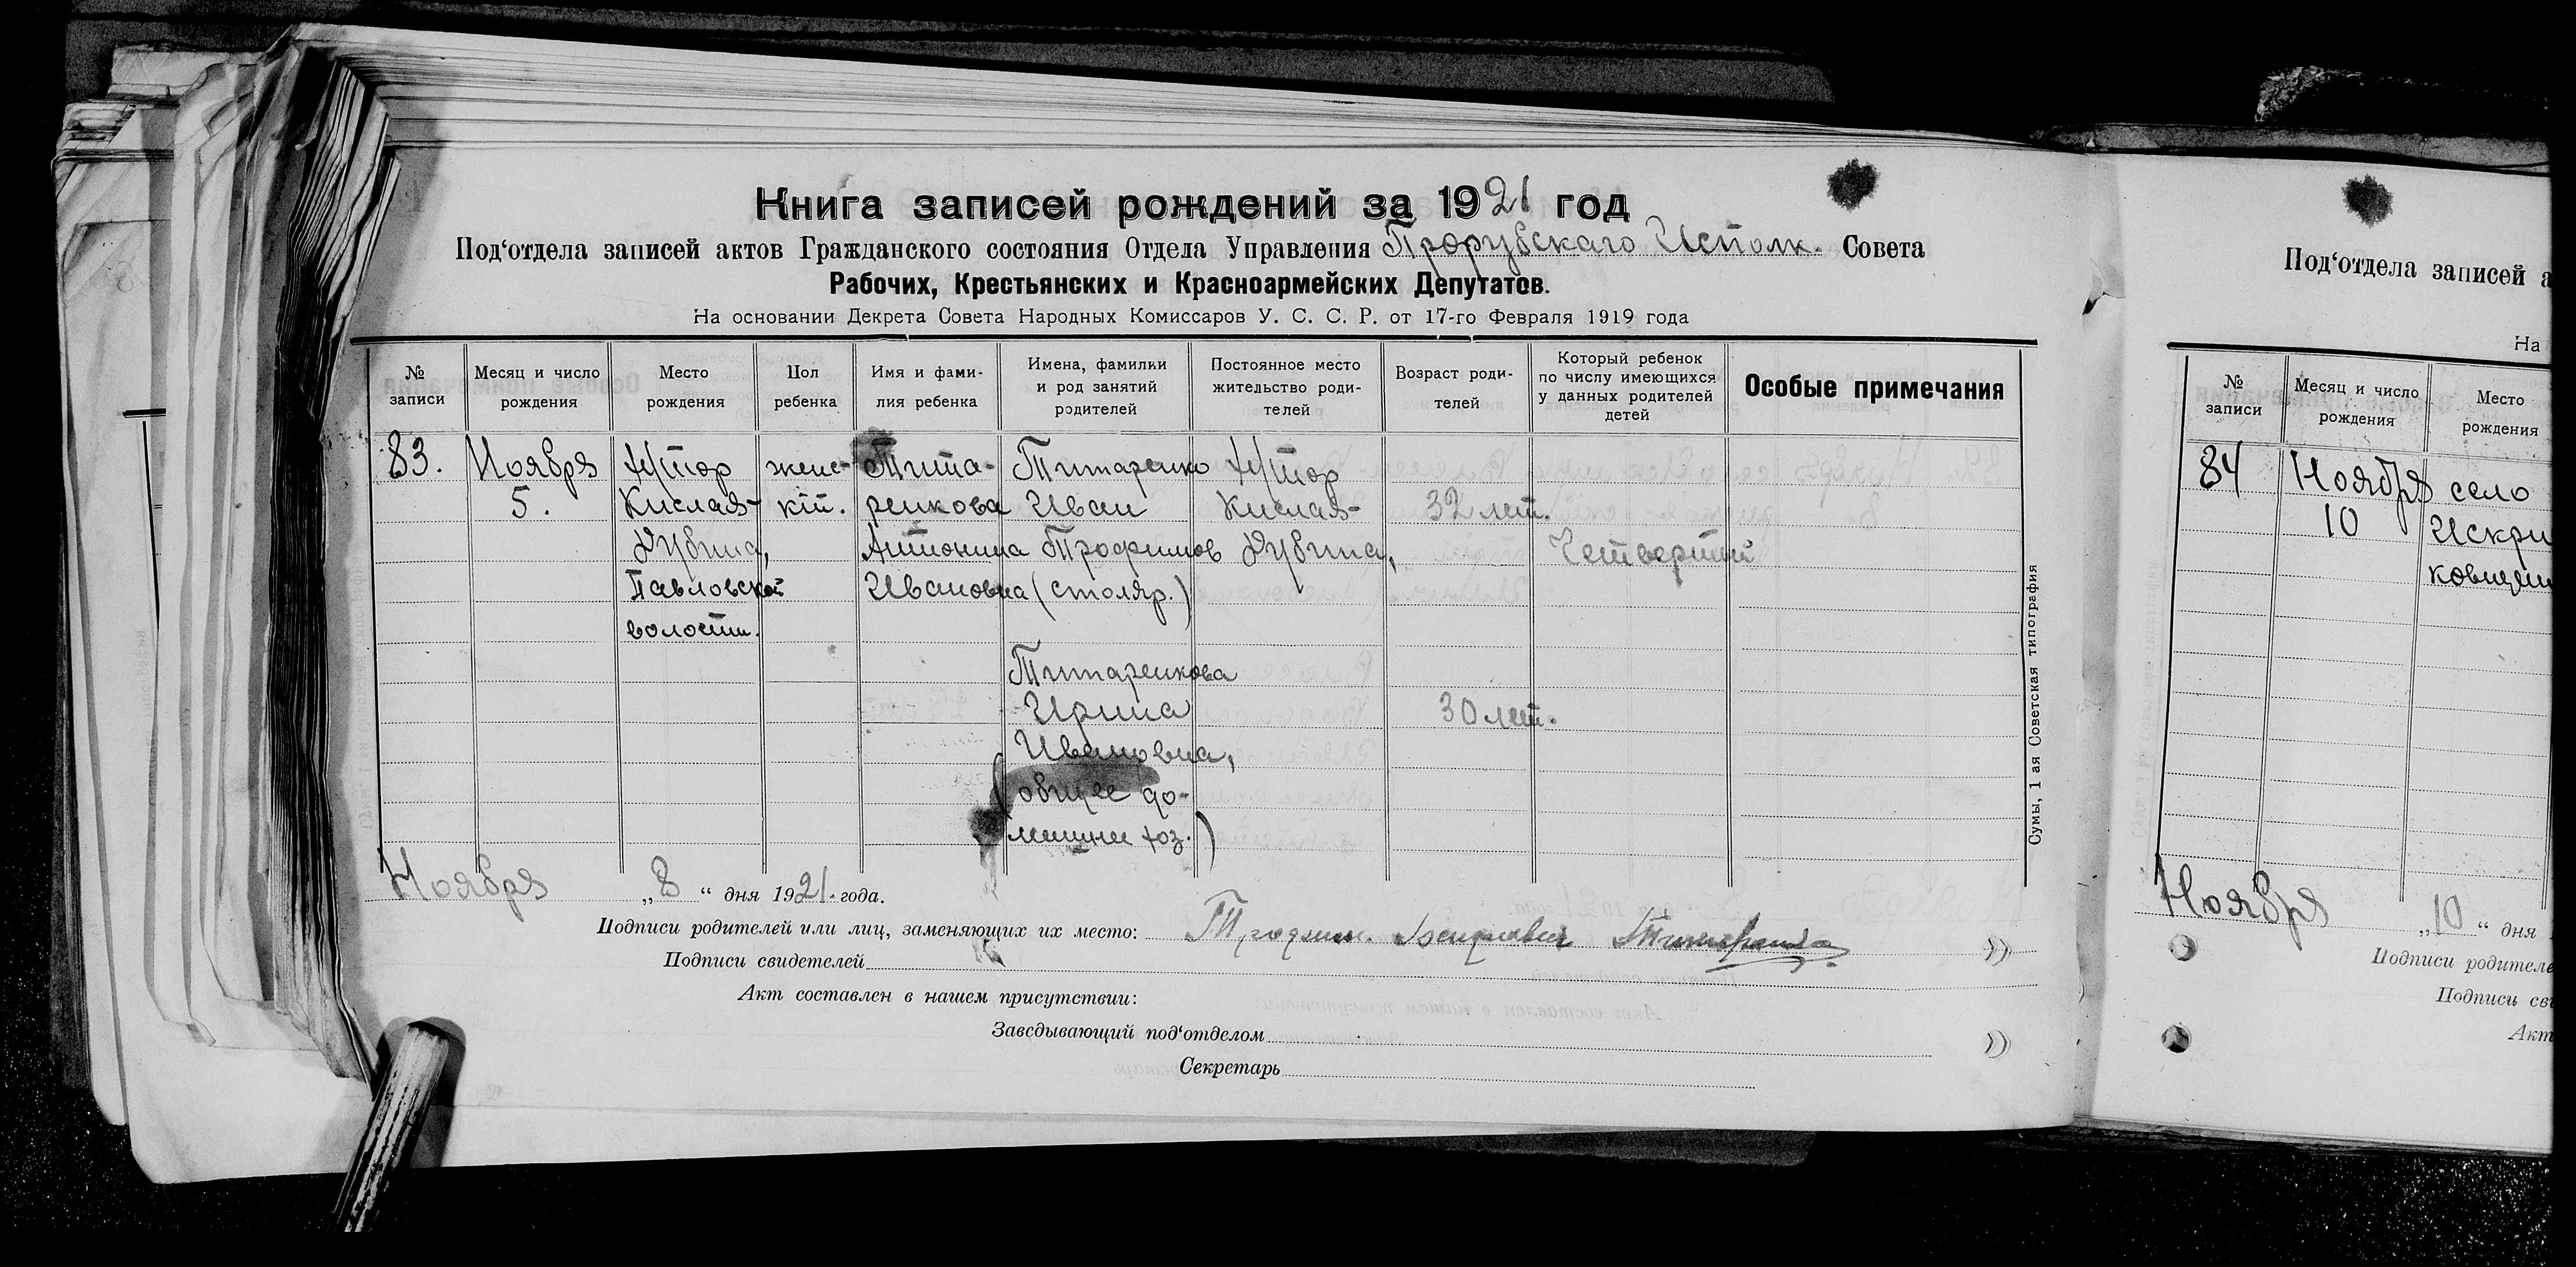 Книга записей рождений за 1921 год
Под‘отдела записей актов Гражданского состояния Отдела Управления Прорубскаго Исполк. Совета
Рабочих, Крестьянских и Красноармейских Депутатов.
На основании Декрета Совета Народных Комиссаров У. С. С. Р. от 17-го Февраля 1919 года
№ записи
Месяц и число рождения
Место рождения
Пол ребенка
Имя и фами-
лия ребенка
Имена, фамилии
и род занятий
родителей
Постоянное место
жительство роди-
телей
Возраст роди-
телей
Который ребенок
по числу имеющихся
у данных родителей
детей
Особые примечания
83.
Ноября
5.
Хутор
Кислая-
Дубина,
Павловской
волости.
женс-
кій.
Тита-
ренкова
Антонина
Ивановна
Титаренко
Иван
Трофимов
(столяр.)
Титаренкова
Ирина
Ивановна,
(общее до-
машнее хоз.)
Хутор
Кислая-
Дубина,
32 лет.
30 лет.
Четвертый
Сумы, 1 ая Советская типография
Ноября „8“ дня 1921. года.
Подписи родителей или лиц, заменяющих их место:
Подписи свидетелей
Акт составлен в нашем присутствии:
Заведывающий под‘отделом
Секретарь
Под‘отдела записей а
На
№ записи
Месяц и число рождения
Место рождения
84
Ноября
10
село
Искри
ковщин
Ноября „10“ дня
Подписи родителе
Подписи сви
Акт